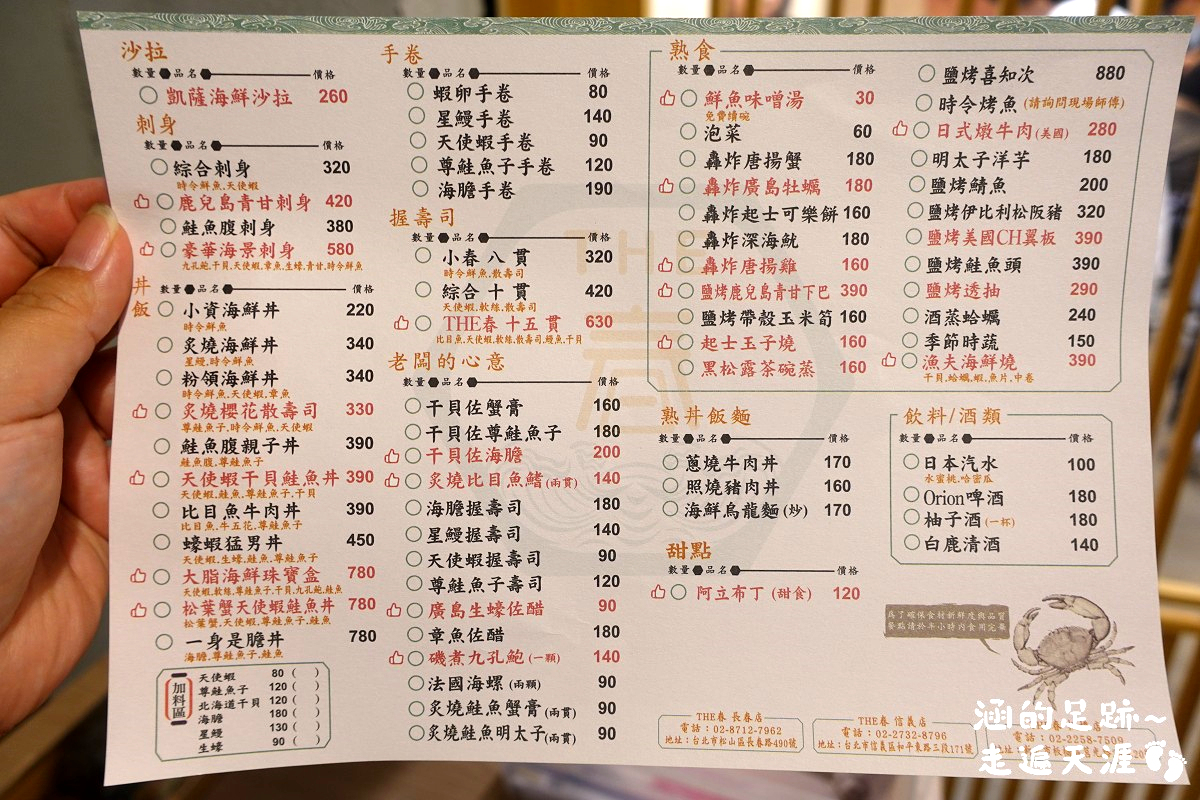 沙拉
數量 品名 價格
凱薩海鮮沙拉 260
刺身
數量 品名 價格
綜合刺身 320
時令鮮魚.天使蝦
鹿兒島青甘刺身 420
鮭魚腹刺身 380
豪華海景刺身 580
九孔鮑.干貝.天使蝦.章魚.生蠔.青甘.時令鮮魚
丼飯
數量 品名 價格
小資海鮮丼 220
時令鮮魚
炙燒海鮮丼 340
星鰻.時令鮮魚
粉領海鮮丼 340
時令鮮魚.天使蝦.章魚
炙燒櫻花散壽司 330
尊鮭魚子.時令鮮魚.天使蝦
鮭魚腹親子丼 390
鮭魚腹.尊鮭魚子
天使蝦干貝鮭魚丼 390
天使蝦.鮭魚.尊鮭魚子.干貝
比目魚牛肉丼 390
比目魚.牛五花.尊鮭魚子
蠔蝦猛男丼 450
天使蝦.生蠔.鮭魚.尊鮭魚子
大脂海鮮珠寶盒 780
天使蝦.軟絲.尊鮭魚子.干貝.九孔鮑.鮭魚
松葉蟹天使蝦鮭魚丼 780
松葉蟹.天使蝦.尊鮭魚子.鮭魚
一身是膽丼 780
海膽.尊鮭魚子.鮭魚
加料區
天使蝦 80 ( )
尊鮭魚子 120 ( )
北海道干貝 120 ( )
海膽 180 ( )
星鰻 130 ( )
生蠔 90 ( )
手卷
數量 品名 價格
蝦卵手卷 80
星鰻手卷 140
天使蝦手卷 90
尊鮭魚子手卷 120
海膽手卷 190
握壽司
數量 品名 價格
小春八貫 320
時令鮮魚.散壽司
綜合十貫 420
天使蝦.軟絲.散壽司
THE春十五貫 630
比目魚.天使蝦.軟絲.散壽司.鰻魚.干貝
老闆的心意
數量 品名 價格
干貝佐蟹膏 160
干貝佐尊鮭魚子 180
干貝佐海膽 200
炙燒比目魚鰭(兩貫) 140
海膽握壽司 180
星鰻握壽司 140
天使蝦握壽司 90
尊鮭魚子壽司 120
廣島生蠔佐醋 90
章魚佐醋 180
磯煮九孔鮑(一顆) 140
法國海螺(兩顆) 90
炙燒鮭魚蟹膏(兩貫) 90
炙燒鮭魚明太子(兩貫) 90
熟食
數量 品名 價格
鮮魚味噌湯 30
免費續碗
泡菜 60
轟炸唐揚蟹 180
轟炸廣島牡蠣 180
轟炸起士可樂餅 160
轟炸深海魷 180
轟炸唐揚雞 160
鹽烤鹿兒島青甘下巴 390
鹽烤帶殼玉米筍 160
起士玉子燒 160
黑松露茶碗蒸 160
鹽烤喜知次 880
時令烤魚(請詢問現場師傅)
日式燉牛肉(美國) 280
明太子洋芋 180
鹽烤鯖魚 200
鹽烤伊比利松阪豬 320
鹽烤美國CH翼板 390
鹽烤鮭魚頭 390
鹽烤透抽 290
酒蒸蛤蠣 240
季節時蔬 150
漁夫海鮮燒 390
干貝.蛤蠣.蝦.魚片.中卷
熟丼飯麵
數量 品名 價格
蔥燒牛肉丼 170
照燒豬肉丼 160
海鮮烏龍麵(炒) 170
甜點
數量 品名 價格
阿立布丁(甜食) 120
飲料/酒類
數量 品名 價格
日本汽水 100
水蜜桃.哈密瓜
Orion啤酒 180
柚子酒(一杯) 180
白鹿清酒 140
為了確保食材新鮮度與品質
餐點請於半小時內食用完畢
THE春
THE春 長春店
電話：02-8712-7962
地址：台北市松山區長春路490號
THE春 信義店
電話：02-2732-8796
地址：台北市信義區和平東路三段171號
電話：02-2258-7509
涵的足跡~
走遍天涯